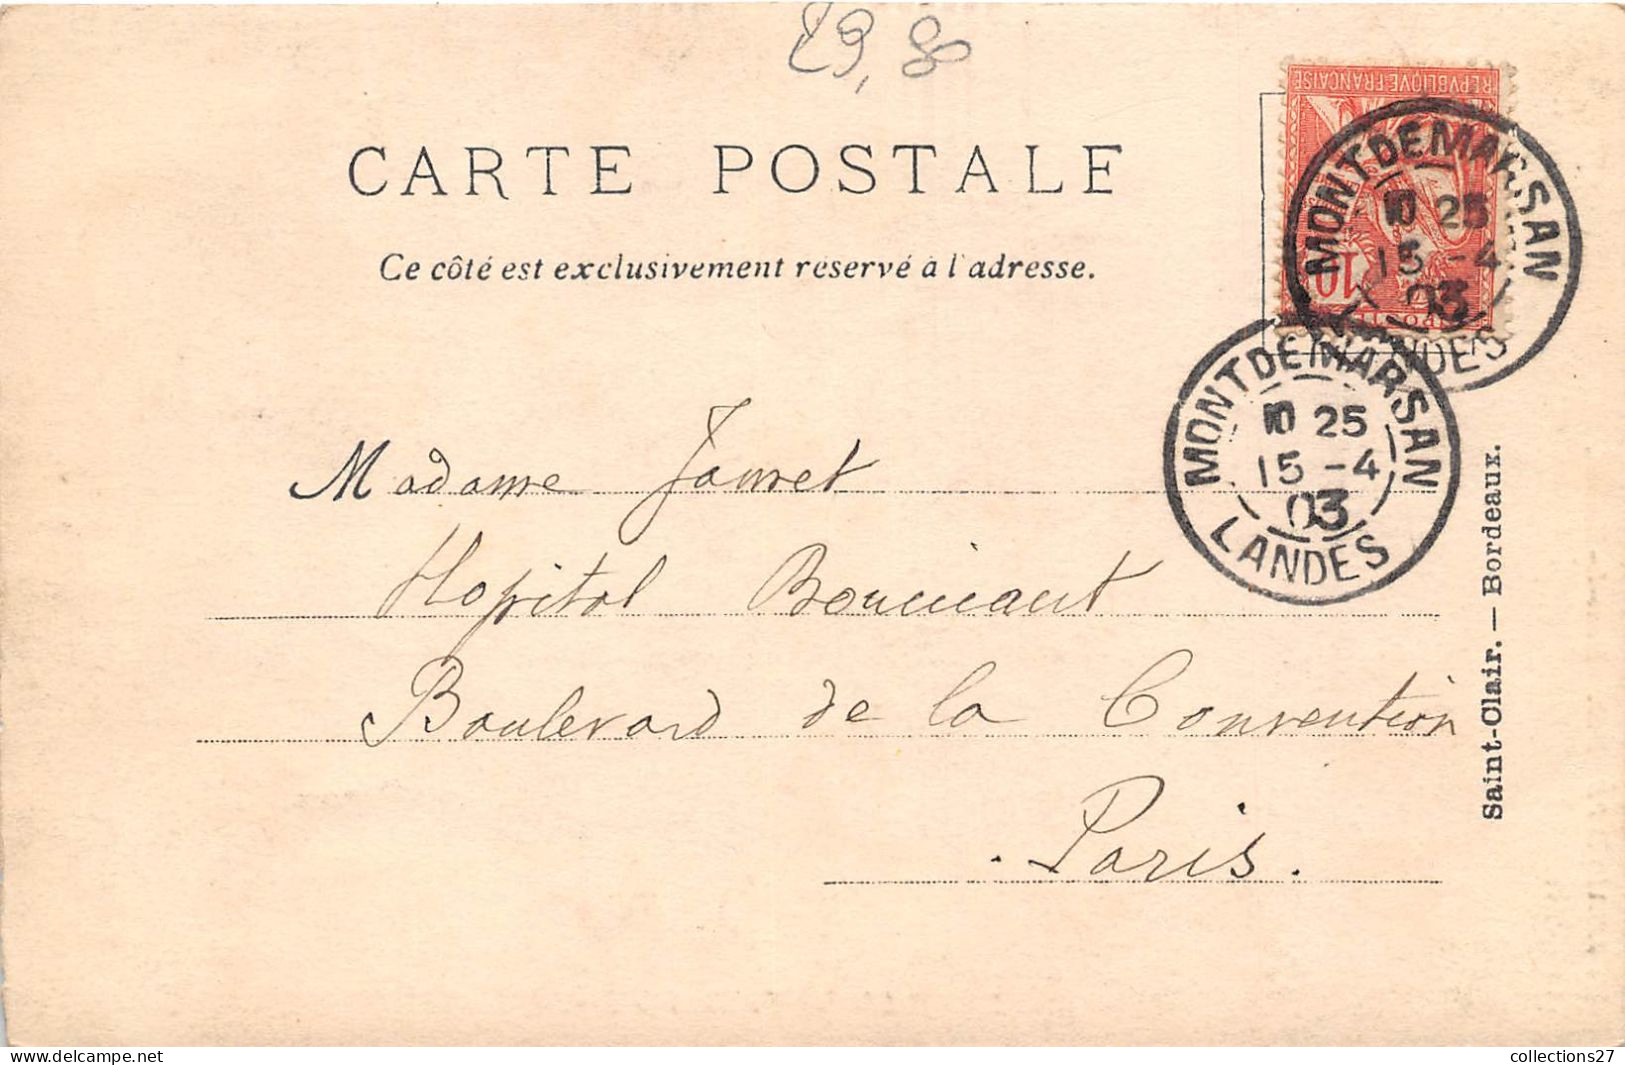 29,80
CARTE POSTALE
Ce côté est exclusivement réservé à l'adresse.
REPVBLIQVE FRANÇAISE
10
MONT DE MARSAN
10 25
15 -4
03
LANDES
MONT DE MARSAN
10 25
15 -4
03
LANDES
Madame Jouret
Hopital Boucicaut
Boulevard de la Convention
Paris.
Saint-Clair. — Bordeaux.
collections27